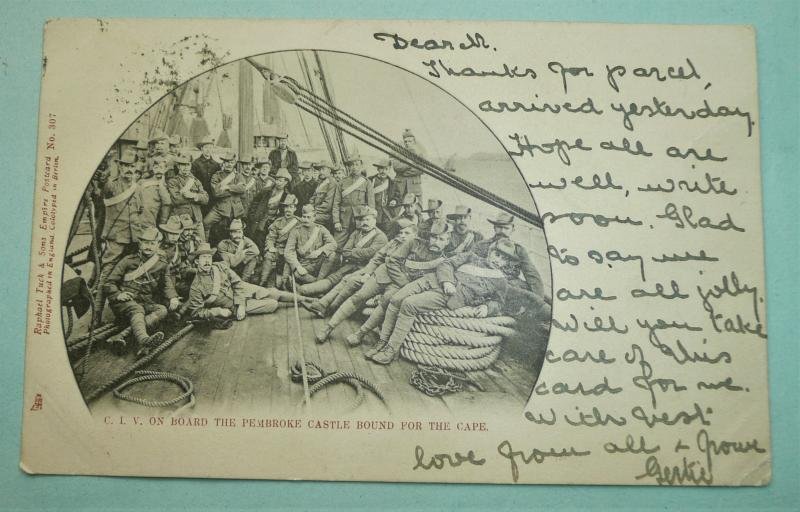 Raphael Tuck & Sons Empire Postcard No. 307
Photographed in England. Colotyped in Berlin.
Dear M.
Thanks for parcel,
arrived yesterday.
Hope all are
well, write
soon. Glad
to say we
are all jolly.
Will you take
care of this
card for me.
With best
love from all & from
Gertie
C. I. V. ON BOARD THE PEMBROKE CASTLE BOUND FOR THE CAPE.